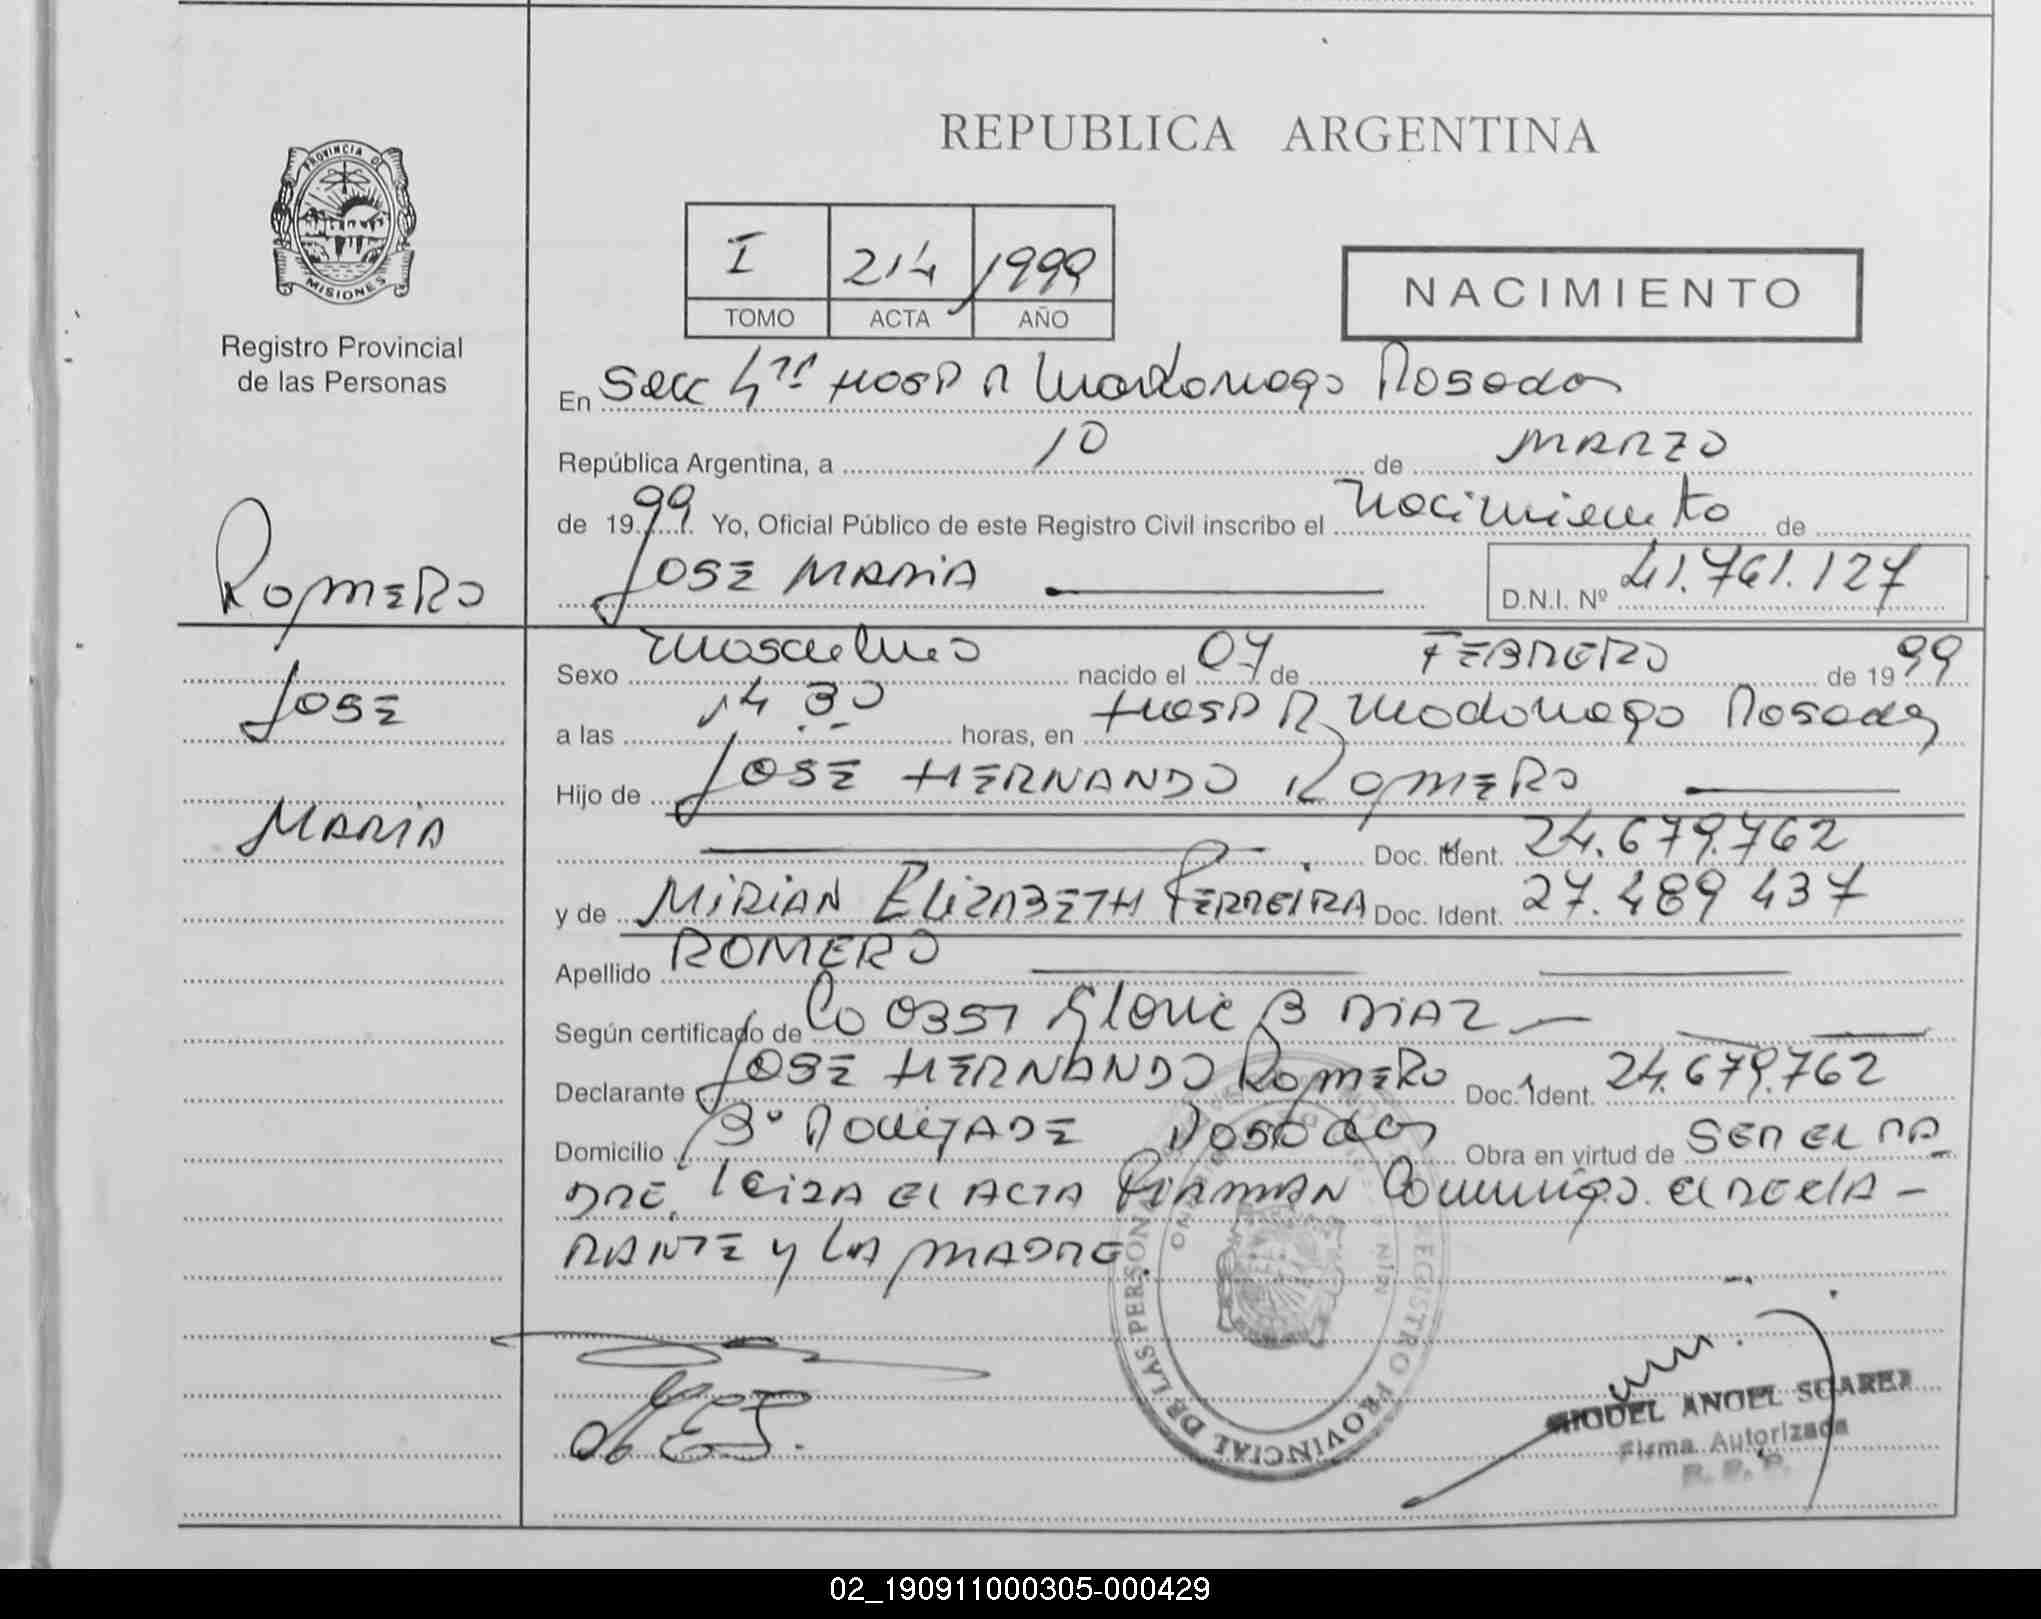 REPUBLICA ARGENTINA
PROVINCIA D
MISIONES
Registro Provincial
de las Personas
I 214 1999
TOMO ACTA AÑO
NACIMIENTO
En Secc 4ta HOSP R Madariaga Posadas
República Argentina, a 10 de MARZO
de 1999. Yo, Oficial Público de este Registro Civil inscribo el Nacimiento de
JOSE MARIA
D.N.I. Nº 41.761.127
ROMERO
JOSE
MARIA
Sexo Masculino nacido el 07 de FEBRERO de 1999
a las 14 30 horas, en HOSP R Madariaga Posadas
Hijo de JOSE HERNANDO ROMERO
Doc. Ident. 24.679.762
y de MIRIAN ELIZABETH FERREIRA Doc. Ident. 27.489 437
Apellido ROMERO
Según certificado de 0351 B DIAZ
Declarante JOSE HERNANDO ROMERO Doc. Ident. 24.679.762
Domicilio Posadas Obra en virtud de SER EL PA
DRE. LEIDA EL ACTA FIRMAN Conmigo EL DECLA-
RANTE y LA MADRE.
REGISTRO PROVINCIAL DE LAS PERSONAS
MIGUEL ANGEL SUAREZ
Firma Autorizada
R. P. P.
02_190911000305-000429